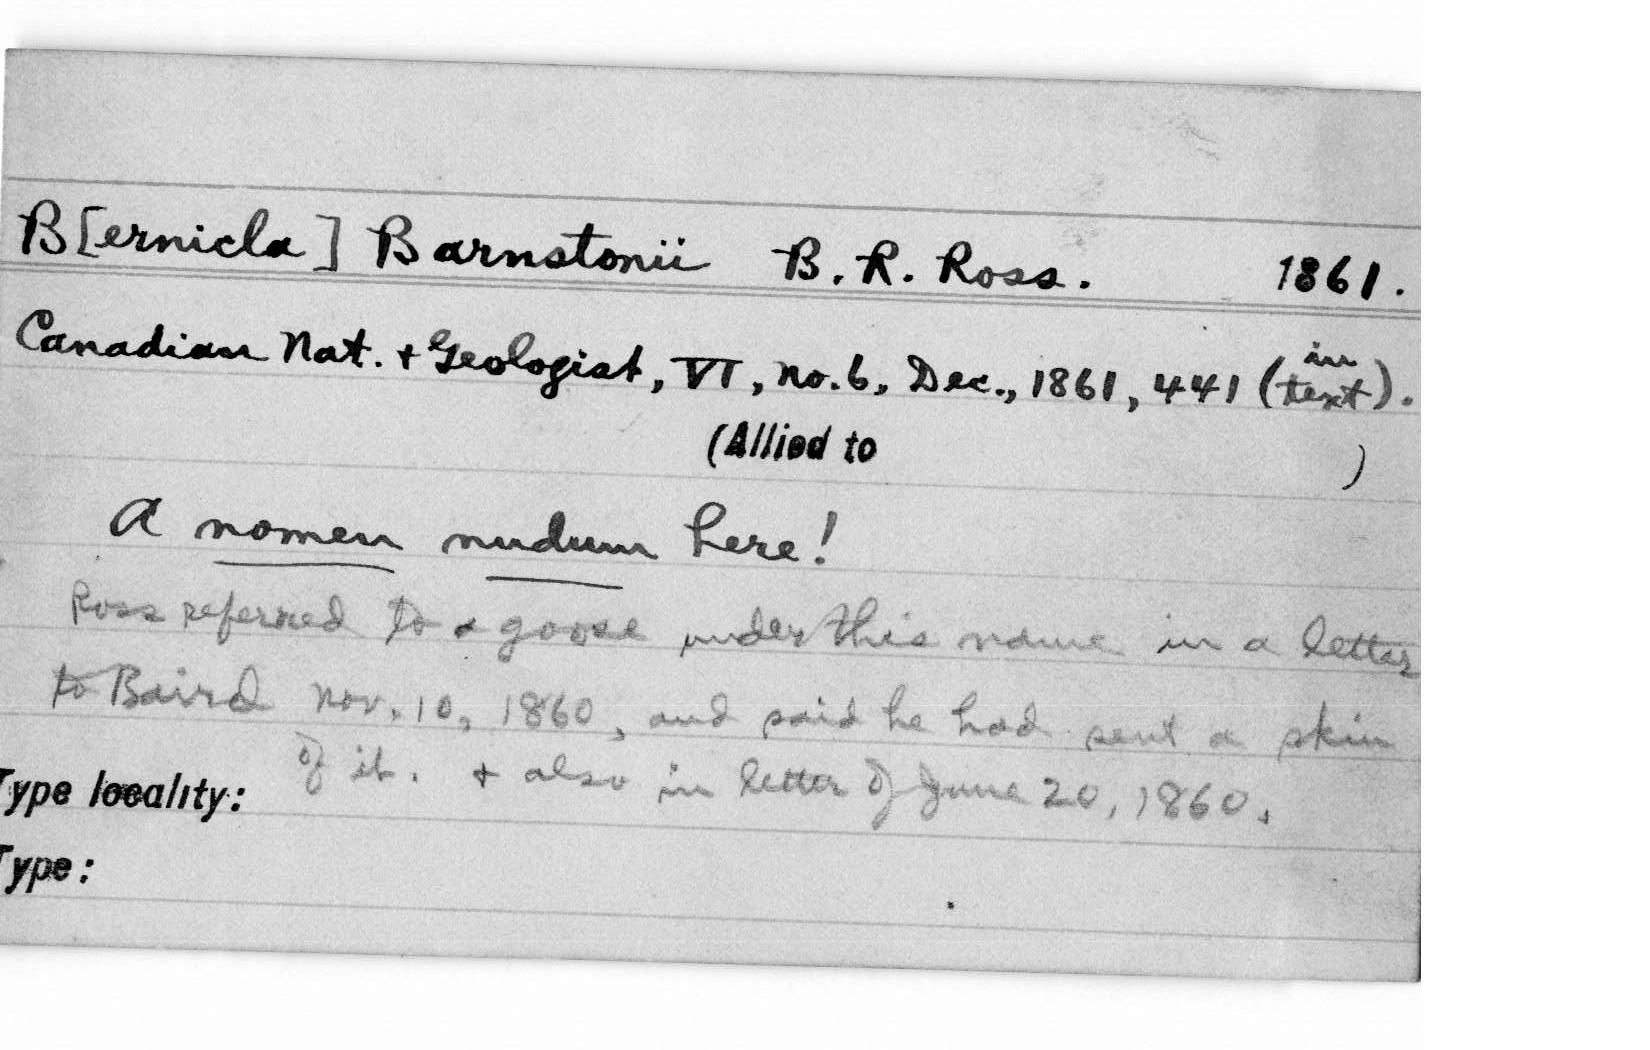 B[ernicla] Barnstonii B. R. Ross. 1861.
Canadian Nat. + Geologist, VI, no. 6, Dec., 1861, 441 (in text).
(Allied to )
A nomen nudum here!
Ross referred to a goose under this name in a letter
to Baird Nov. 10, 1860, and said he had sent a skin
of it. + also in letter of June 20, 1860.
Type locality:
Type: